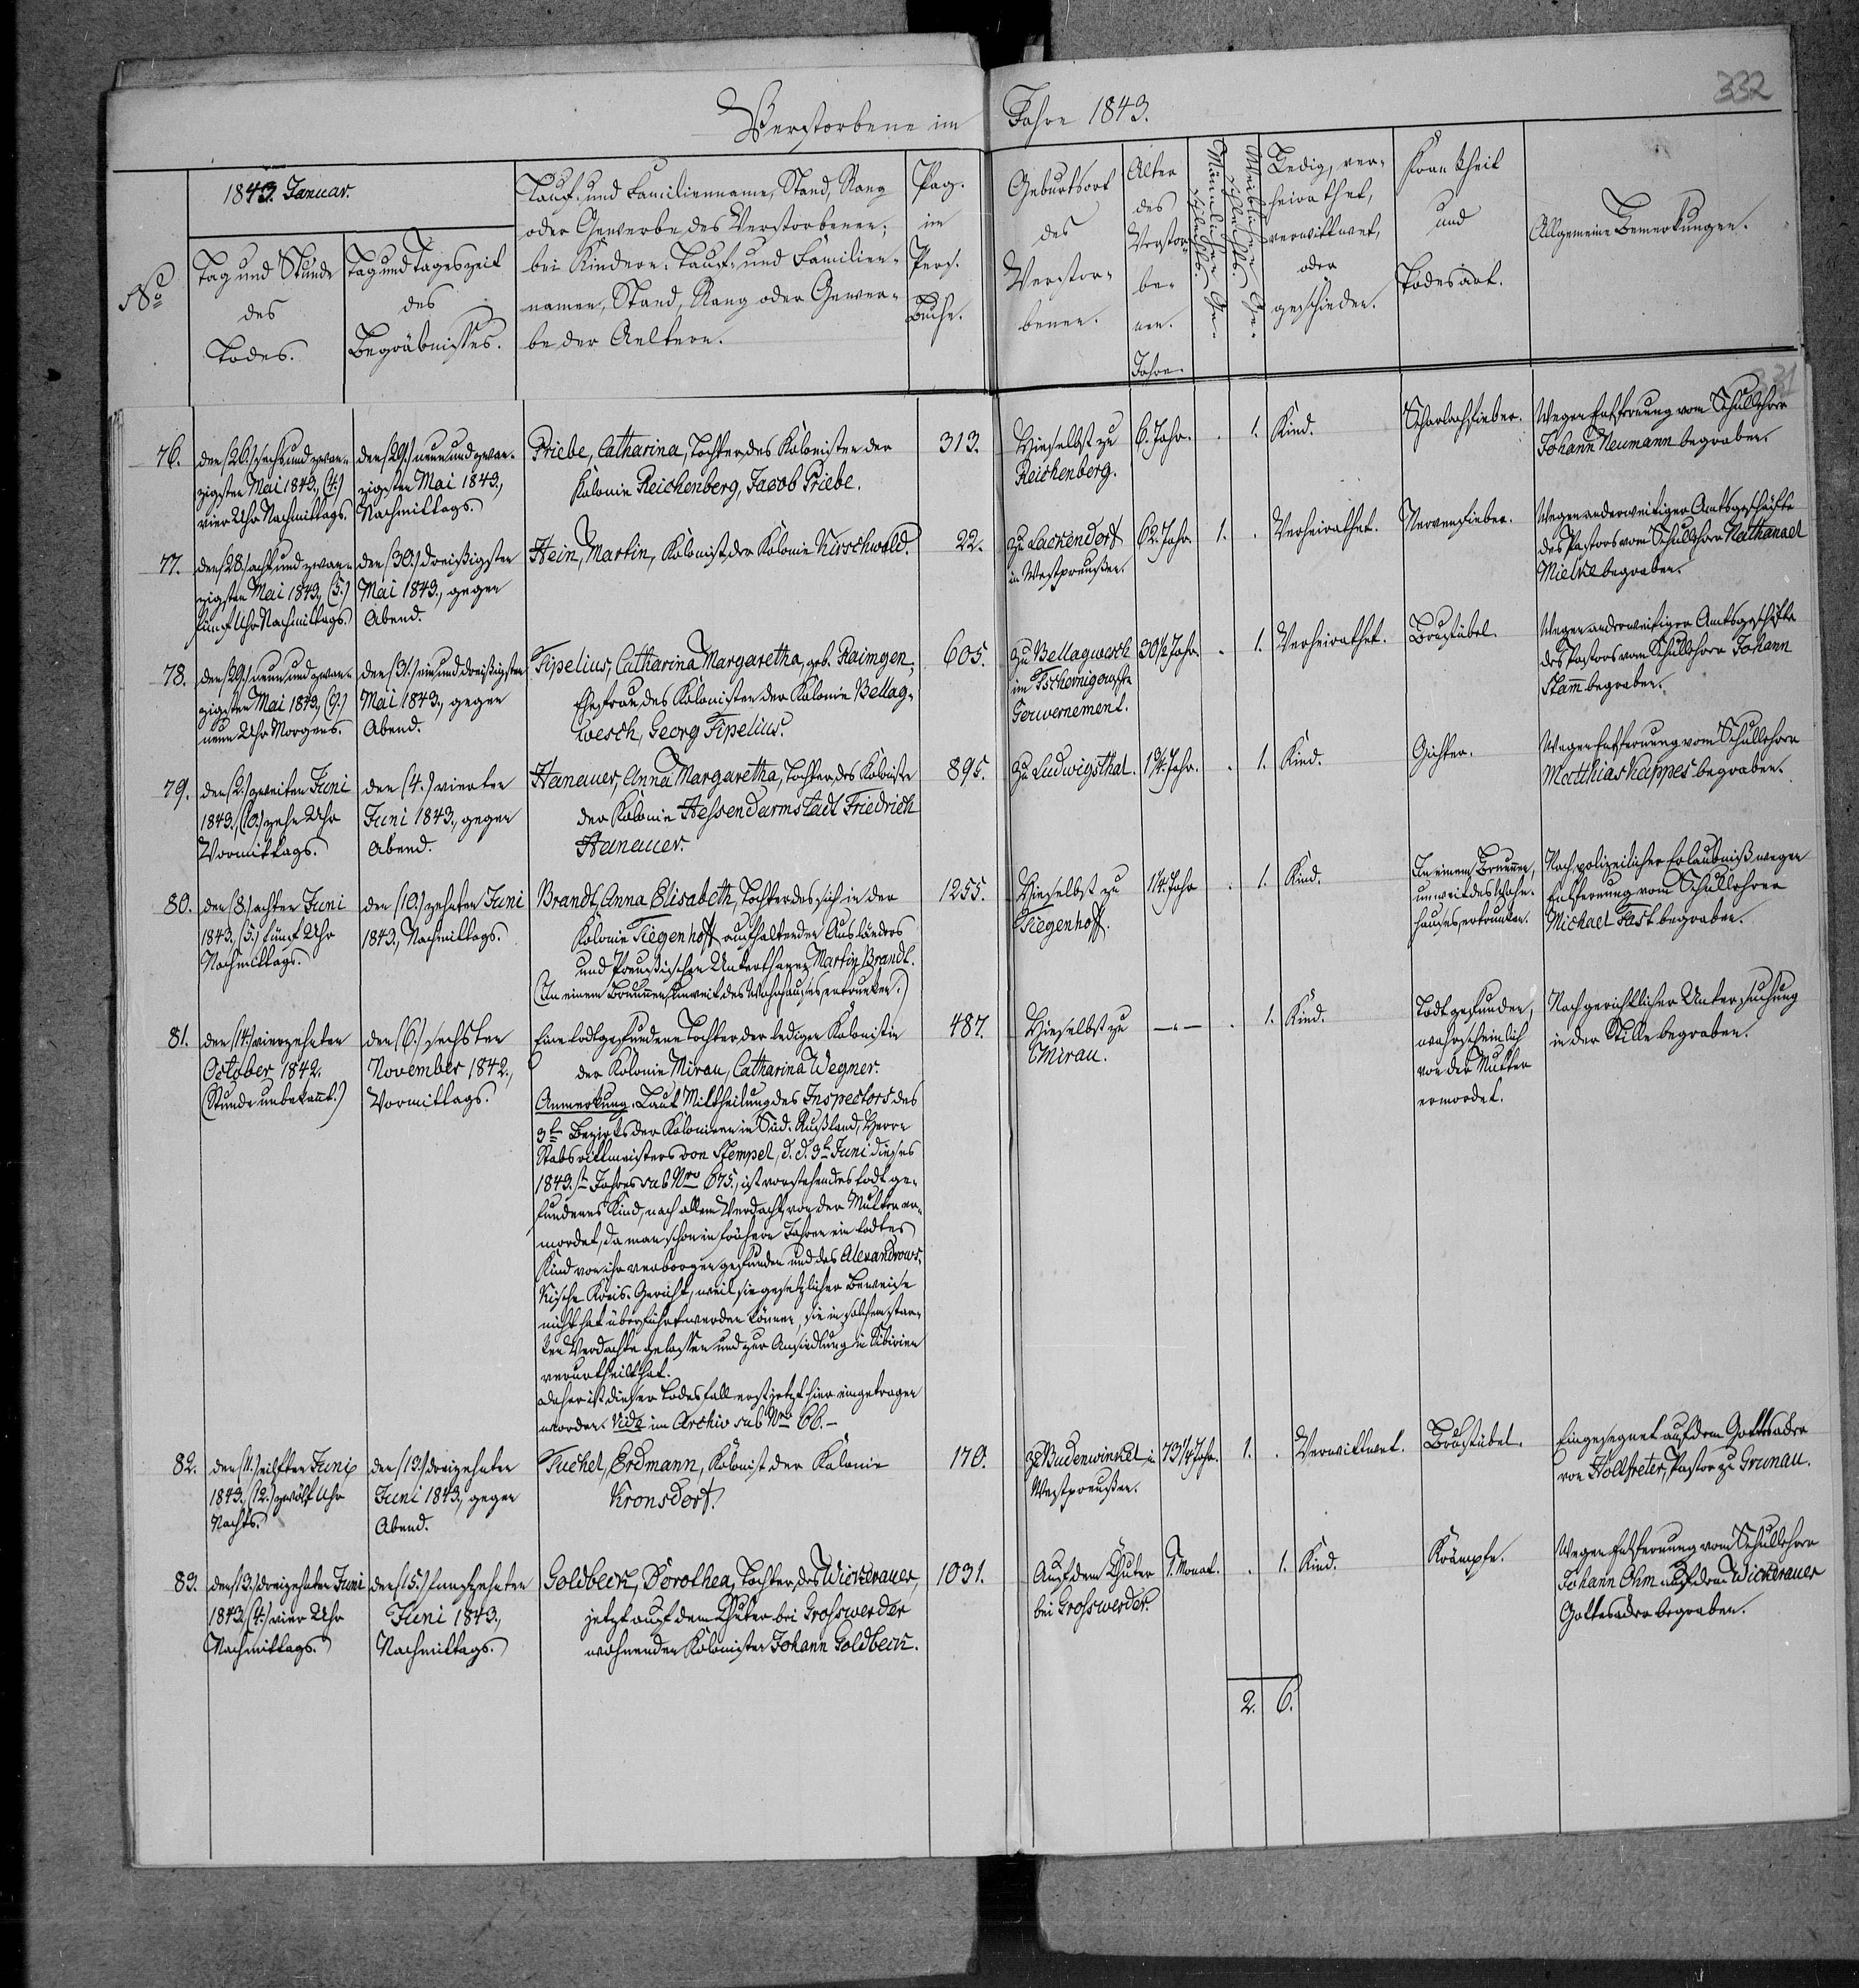 332
Verstorbene im Jahre 1843.
No
1843. Januar.
Tag und Stunde
des
Todes.
Tag und Tageszeit
des
Begräbnisses.
Tauf- und Familienname, Stand, Rang
oder Gewerbe des Verstorbenen;
bei Kindern: Tauf- und Familien-
namen, Stand, Rang oder Gewer-
be der Aeltern.
Pag.
im
Pers.
Buche.
Geburtsort
des
Verstor-
benen.
Alter
des
Verstor-
be-
nen.
Jahre.
Männlichen Ge-
schlechts.
Weiblichen Ge-
schlechts.
Ledig, ver-
heirathet,
verwittwet,
oder
geschieden.
Krankheit
und
Todesart.
Allgemeine Bemerkungen.
331
76.
den (26.) sechs und zwan-
zigsten Mai 1843., (4.)
vier Uhr Nachmittags.
den (29.) neun und zwan-
zigsten Mai 1843.,
Nachmittags.
Priebe, Catharina, Tochter des Kolonisten der
Kolonie Reichenberg, Jacob Priebe.
313.
Hieselbst zu
Reichenberg.
6. Jahr.
. 1.
Kind.
Scharlachfieber.
Wegen Entfernung vom Schullehrer
Johann Neumann begraben.
77.
den (28.) acht und zwan-
zigsten Mai 1843., (5.)
fünf Uhr Nachmittags.
den (30.) dreißigsten
Mai 1843., gegen
Abend.
Hein, Martin, Kolonist der Kolonie Kirschwald.
22.
Zu Lackendorf
in Westpreußen.
62. Jahr.
1. .
Verheirathet.
Nervenfieber.
Wegen anderweitiger Amtsgeschäfte
des Pastors vom Schullehrer Nathanael
Mielke begraben.
78.
den (29.) neun und zwan-
zigsten Mai 1843., (9.)
neun Uhr Morgens.
den (31.) ein und dreißigsten
Mai 1843., gegen
Abend.
Fipelius, Catharina Margaretha, geb. Raimgen,
Ehefrau des Kolonisten der Kolonie Bellag-
wesch, Georg Fipelius.
605.
Zu Bellagwesch
im Tschernigowschen
Gouvernement.
30 1/2 Jahr.
. 1.
Verheirathet.
Brustübel.
Wegen anderweitiger Amtsgeschäfte
des Pastors vom Schullehrer Johann
Stamm begraben.
79.
den (2.) zweiten Juni
1843., (10.) zehn Uhr
Vormittags.
den (4.) vierten
Juni 1843., gegen
Abend.
Hanauer, Anna Margaretha, Tochter des Kolonisten
der Kolonie Hessendarmstadt Friedrich
Hanauer.
895.
Zu Ludwigsthal.
1 3/4. Jahr.
. 1.
Kind.
Gichter.
Wegen Entfernung vom Schullehrer
Matthias Kappes begraben.
80.
den (8.) achten Juni
1843., (5.) fünf Uhr
Nachmittags.
den (10.) zehnten Juni
1843., Nachmittags.
Brandt, Anna Elisabeth, Tochter des sich in der
Kolonie Tiegenhoff aufhaltenden Ausländers
und Preußischen Unterthanen Martin Brandt.
(In einem Brunnen unweit des Wohnhauses, ertrunken.)
1255.
Hieselbst zu
Tiegenhoff.
1 1/4. Jahr
. 1.
Kind.
In einem Brunnen,
unweit des Wohn-
hauses, ertrunken.
Nach polizeilicher Erlaubniß wegen
Entfernung vom Schullehrer
Michael Fast begraben.
81.
den (14.) vierzehnten
October 1842.
(Stunde unbekannt.)
den (6.) sechsten
November 1842.,
Vormittags.
Eine todtgefundene Tochter der ledigen Kolonistin
der Kolonie Mirau, Catharina Wegner.
Anmerkung. Laut Mittheilung des Inspectors des
3t. Bezirks der Kolonieen in Süd-Rußland, Herrn
Stabsrittmeisters von Stempel, d. d. 9t. Juni dieses
1843.st Jahres sub Nro 675., ist vorstehendes todt ge-
fundenes Kind, nach allem Verdacht, von der Mutter er-
mordet, da man schon in frühern Jahren ein todtes
Kind von ihr verborgen gefunden und das Alexandrows-
kische Kreis-Gericht, weil sie gesetzlicher Beweise
nicht hat überführt werden können, sie in solchem star-
ken Verdachte gelassen und zur Ansiedlung in Sibirien
verurtheilt hat.
Daher ist dieser Todesfall erst jetzt hier eingetragen
worden. Vide im Archiv sub Nro 66.-
487.
Hieselbst zu
Mirau.
—„—
. 1.
Kind.
Todt gefunden,
wahrscheinlich
von der Mutter
ermordet.
Nach gerichtlicher Untersuchung
in der Stille begraben.
82.
den (11.) eilften Juni
1843., (12.) zwölf Uhr
Nachts.
den (13.) dreizehnten
Juni 1843., gegen
Abend.
Tuchel, Erdmann, Kolonist der Kolonie
Kronsdorf.
170.
Zu Budenwinkel in
Westpreußen.
73 1/4 Jahr.
1. .
Verwittwet.
Brustübel.
Eingesegnet auf dem Gottesacker
von Holtfreter, Pastor zu Grunau.
83.
den (13.) dreizehnten Juni
1843., (4.) vier Uhr
Nachmittags.
den (15.) funfzehnten
Juni 1843.,
Nachmittags.
Goldbeck, Dorothea, Tochter des Wickerauer,
jetzt auf dem Chutor bei Grosswerder
wohnenden Kolonisten Johann Goldbeck.
1031.
Auf dem Chutor
bei Grosswerder.
1. Monat.
. 1.
Kind.
Krämpfe.
Wegen Entfernung vom Schullehrer
Johann Ohm auf dem Wickerauer
Gottesacker begraben.
2. 6.